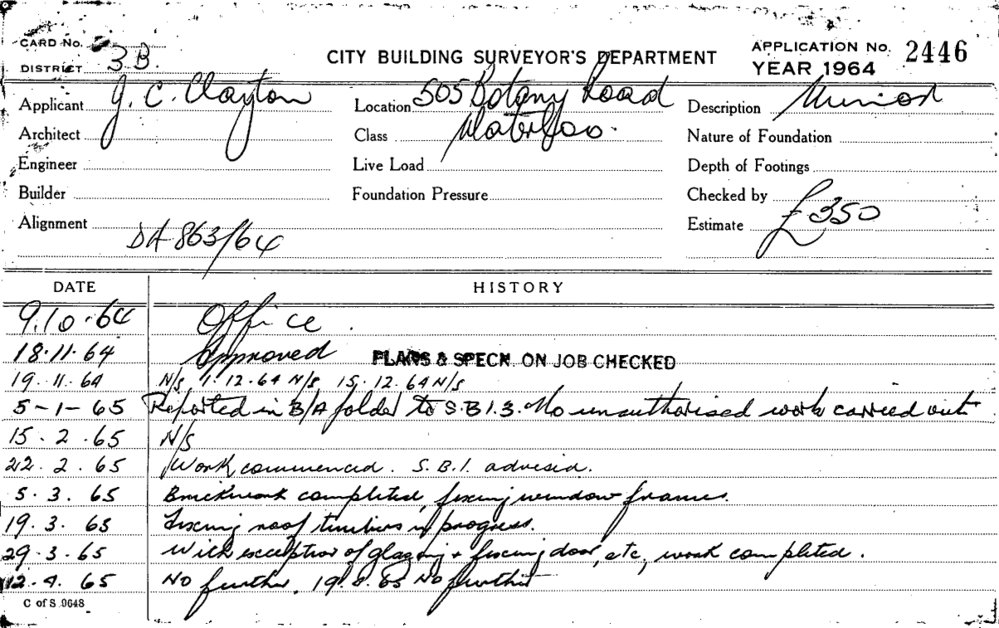 CARD No. 3B. CITY BUILDING SURVEYOR'S DEPARTMENT APPLICATION No. 2446
DISTRICT YEAR 1964
Applicant J. C. Clayton Location 505 Botany Road Description Minor
Architect Class Waterloo. Nature of Foundation
Engineer Live Load Depth of Footings
Builder Foundation Pressure Checked by
Alignment Estimate £350
DA 863/64
DATE HISTORY
9.10.64 Office.
18.11.64 Approved PLANS & SPECN. ON JOB CHECKED
19.11.64 N/S 1.12.64 N/S 15.12.64 N/S
5-1-65 Reported in B/A folder to S.B.I. 3. No unauthorised work carried out
15.2.65 N/S
22.2.65 Work commenced. S.B.I. advised.
5.3.65 Brickwork completed, fixing window frames.
19.3.65 Fixing roof timbers in progress.
29.3.65 With exception of glazing + fixing door, etc, work completed.
12.4.65 No further. 65 No further
C of S 0648